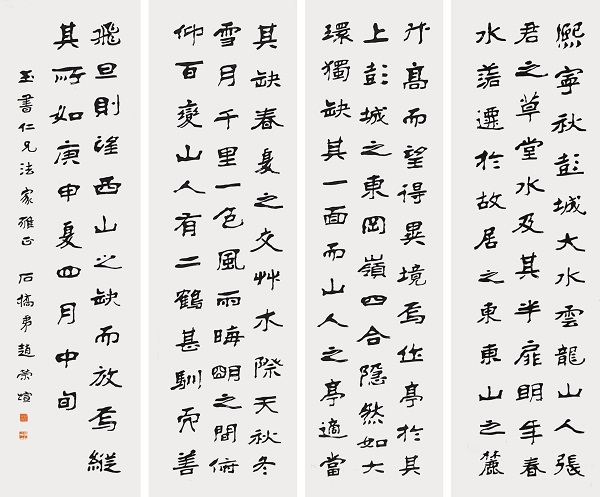 熙寧秋彭城大水雲龍山人張
君之草堂水及其半扉明年春
水落遷於故居之東東山之麓
升高而望得異境焉作亭於其
上彭城之東岡嶺四合隱然如大
環獨缺其一面而山人之亭適當
其缺春夏之交艸木際天秋冬
雪月千里一色風雨晦明之間俯
仰百變山人有二鶴甚馴而善
飛旦則望西山之缺而放焉縱
其所如庚申夏四月中旬
玉書仁兄法家雅正 石橋弟趙榮